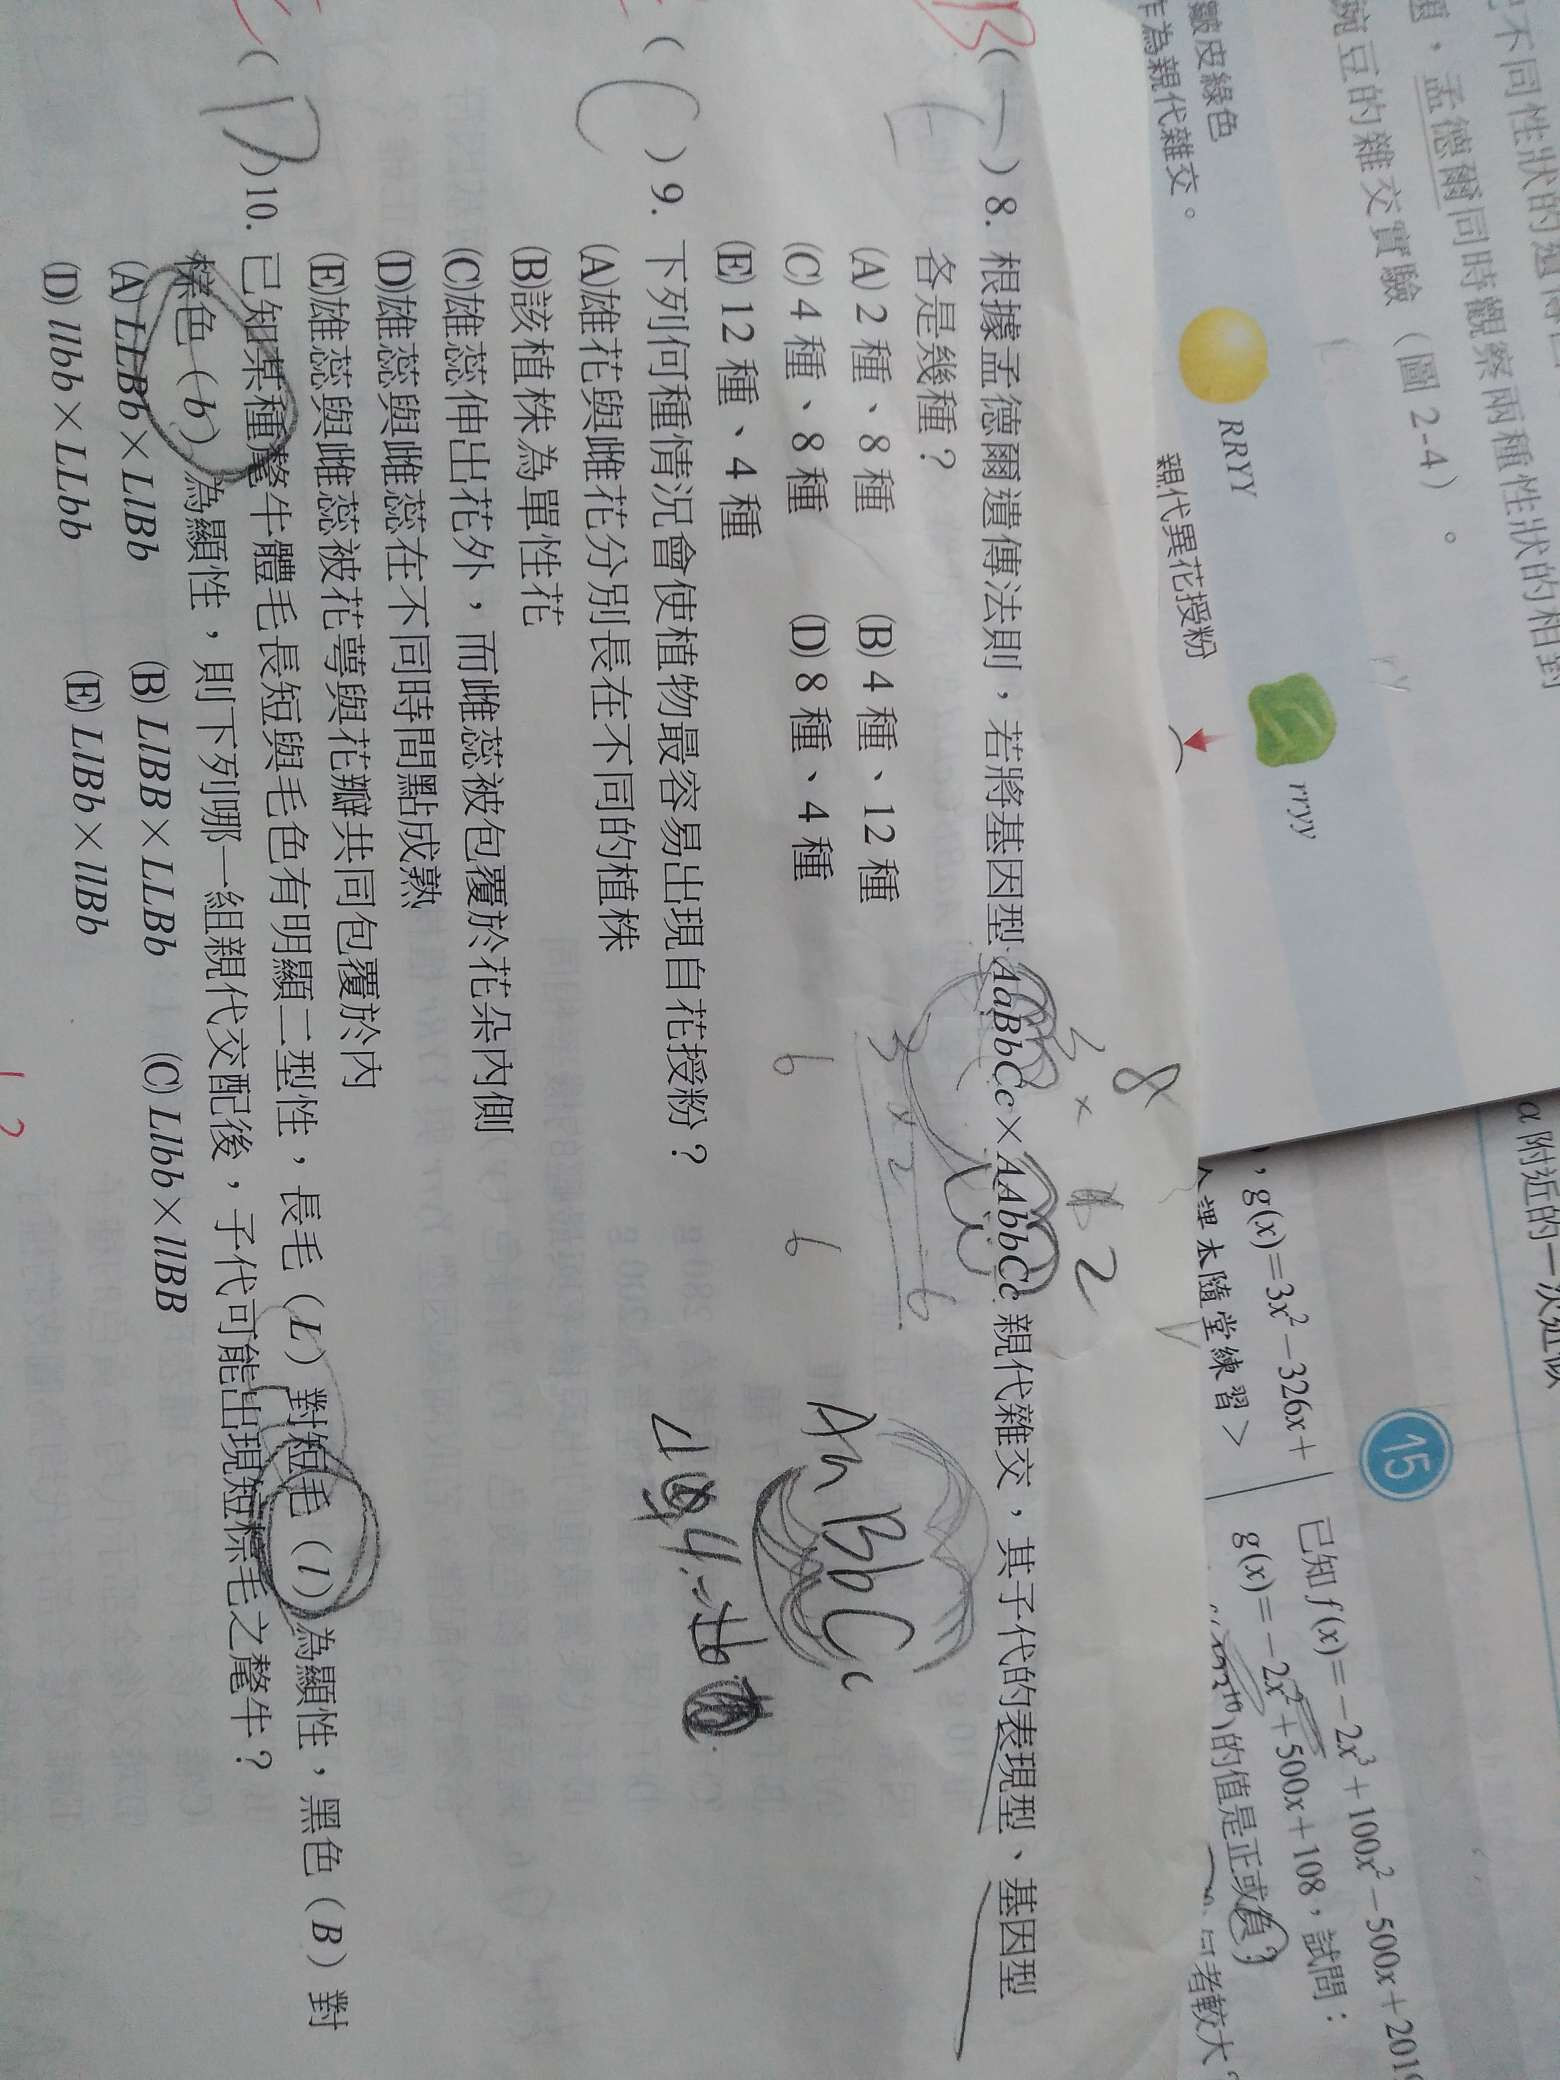 不同性狀的遺傳
，孟德爾同時觀察兩種性狀的相對
豌豆的雜交實驗（圖2-4）。
皺皮綠色
作為親代雜交。
RRYY
rryy
親代異花授粉
α附近的一次近似
15
，g(x)=3x²－326x＋
課本隨堂練習＞
已知f(x)=－2x³＋100x²－500x＋2019
g(x)=－2x²＋500x＋108，試問：
的值是正或負？
者較大？
B
8
2
( )8. 根據孟德爾遺傳法則，若將基因型AaBbCc×AAbbCc親代雜交，其子代的表現型、基因型
各是幾種？
(A) 2種、8種 (B) 4種、12種
(C) 4種、8種 (D) 8種、4種
(E) 12種、4種
3×2
6
6 6
BbCc
( C )9. 下列何種情況會使植物最容易出現自花授粉？
(A)雄花與雌花分別長在不同的植株
(B)該植株為單性花
(C)雄蕊伸出花外，而雌蕊被包覆於花朵內側
(D)雄蕊與雌蕊在不同時間點成熟
(E)雄蕊與雌蕊被花萼與花瓣共同包覆於內
( D )10. 已知某種氂牛體毛長短與毛色有明顯二型性，長毛（L）對短毛（l）為顯性，黑色（B）對
棕色（b）為顯性，則下列哪一組親代交配後，子代可能出現短棕毛之氂牛？
(A) LLBb×LlBb (B) LlBB×LLBb (C) Llbb×llBB
(D) llbb×LLbb (E) LlBb×llBb